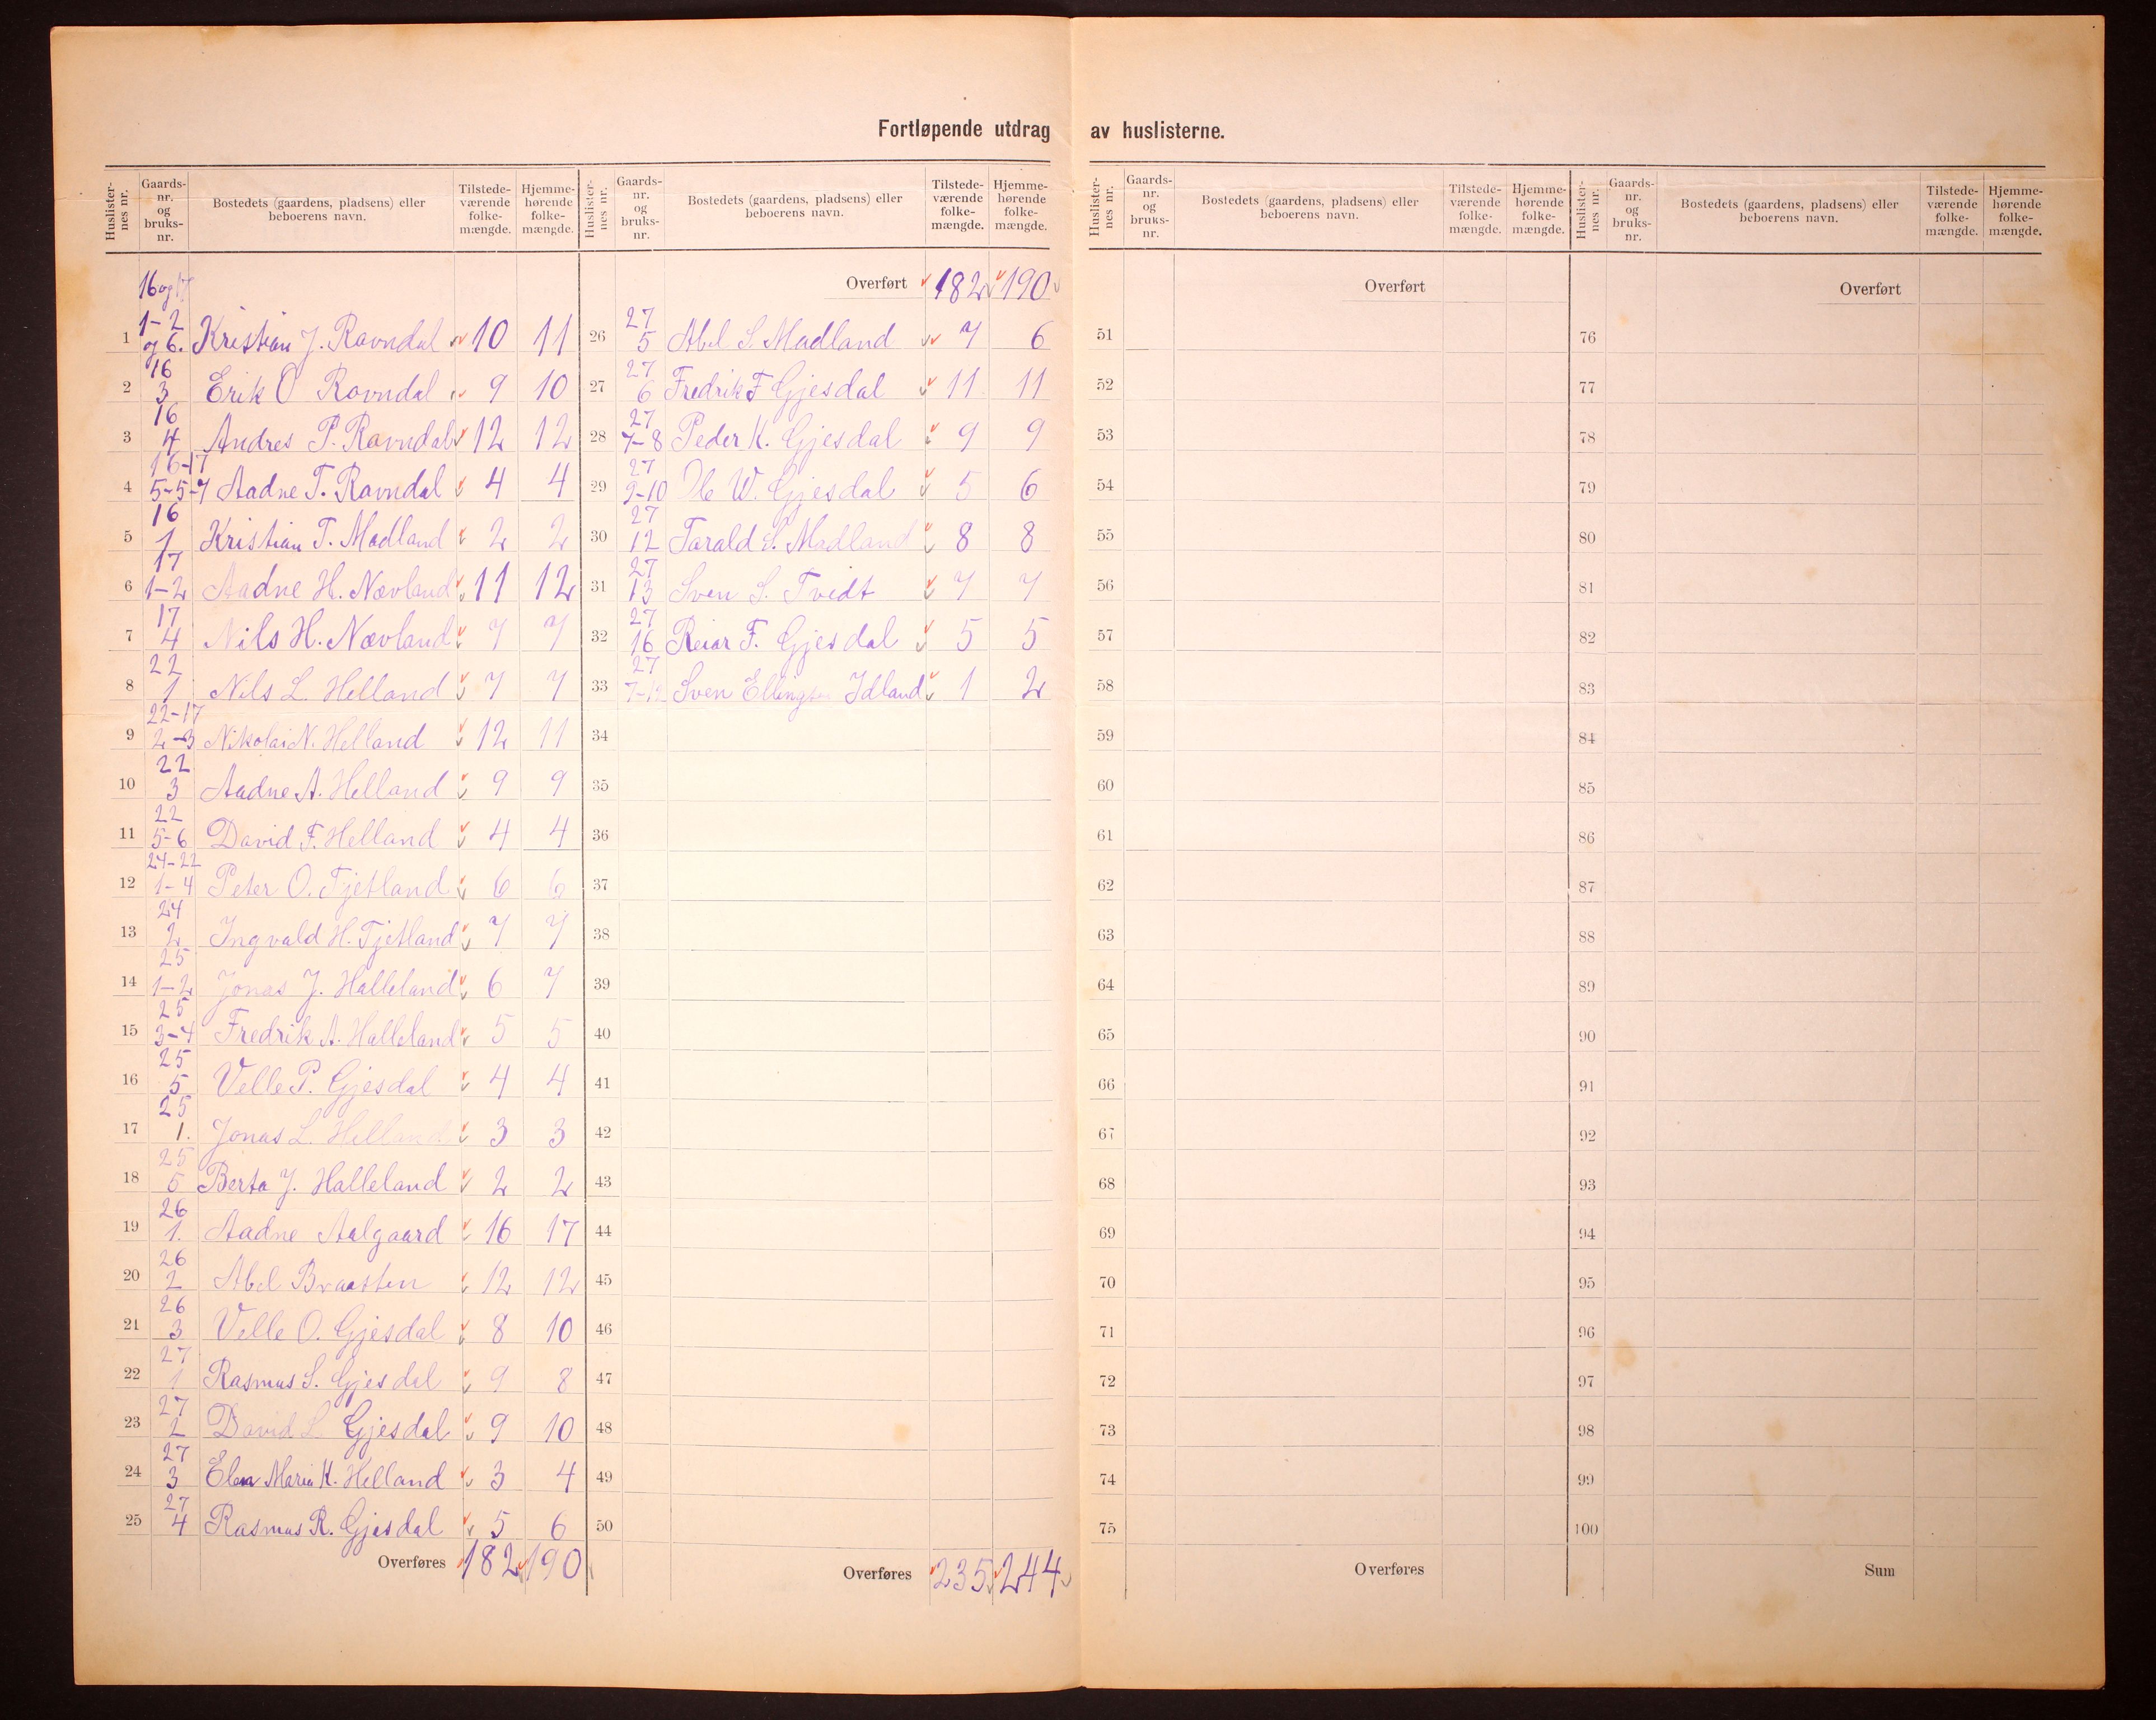 Fortløpende utdrag av huslisterne.
Huslisternes nr. Gaards-nr. og bruks-nr. Bostedets (gaardens, pladsens) eller beboerens navn. Tilstedeværende folkemængde. Hjemmehørende folkemængde.
16 og 17
1 1-2 og 6. Kristian J. Ravndal 10 11
2 16 3 Erik O Ravndal 9 10
3 16 4 Andres P. Ravndal 12 12
4 16-17 5-5-7 Aadne T. Ravndal 4 4
5 16 1 Kristian T. Madland 2 2
6 17 1-2 Aadne H. Nævland 11 12
7 17 4 Nils H. Nævland 7 7
8 22 1 Nils L. Helland 7 7
9 22-17 2-3 Nikolai N. Helland 12 11
10 22 3 Aadne A. Helland 9 9
11 22 5-6 David F. Helland 4 4
12 24-22 1-4 Peter O. Tjetland 6 6
13 24 2 Ingvald H. Tjetland 7 7
14 25 1-2 Jonas J. Halleland 6 7
15 25 3-4 Fredrik A. Halleland 5 5
16 25 5 Velle P. Gjesdal 4 4
17 25 1. Jonas L. Helland 3 3
18 25 5 Berta J. Halleland 2 2
19 26 1. Aadne Aalgaard 16 17
20 26 2 Abel Braasten 12 12
21 26 3 Velle O. Gjesdal 8 10
22 27 1 Rasmus S. Gjesdal 9 8
23 27 2 David L Gjesdal 9 10
24 27 3 Elen Maria K. Helland 3 4
25 27 4 Rasmus R. Gjesdal 5 6
Overføres 182 190
Huslisternes nr. Gaards-nr. og bruks-nr. Bostedets (gaardens, pladsens) eller beboerens navn. Tilstedeværende folkemængde. Hjemmehørende folkemængde.
Overført 182 190
26 27 5 Abel S. Madland 7 6
27 27 6 Fredrik F Gjesdal 11 11
28 27 7-8 Peder K. Gjesdal 9 9
29 27 9-10 Ole W. Gjesdal 5 6
30 27 12 Tarald S. Madland 8 8
31 27 13 Sven S. Tvedt 7 7
32 27 16 Reiar F. Gjesdal 5 5
33 27 7-12 Sven Ellingsen Idland 1 2
34
35
36
37
38
39
40
41
42
43
44
45
46
47
48
49
50
Overføres 235 244
Huslisternes nr. Gaards-nr. og bruks-nr. Bostedets (gaardens, pladsens) eller beboerens navn. Tilstedeværende folkemængde. Hjemmehørende folkemængde.
Overført
51
52
53
54
55
56
57
58
59
60
61
62
63
64
65
66
67
68
69
70
71
72
73
74
75
Overføres
Huslisternes nr. Gaards-nr. og bruks-nr. Bostedets (gaardens, pladsens) eller beboerens navn. Tilstedeværende folkemængde. Hjemmehørende folkemængde.
Overført
76
77
78
79
80
81
82
83
84
85
86
87
88
89
90
91
92
93
94
95
96
97
98
99
100
Sum